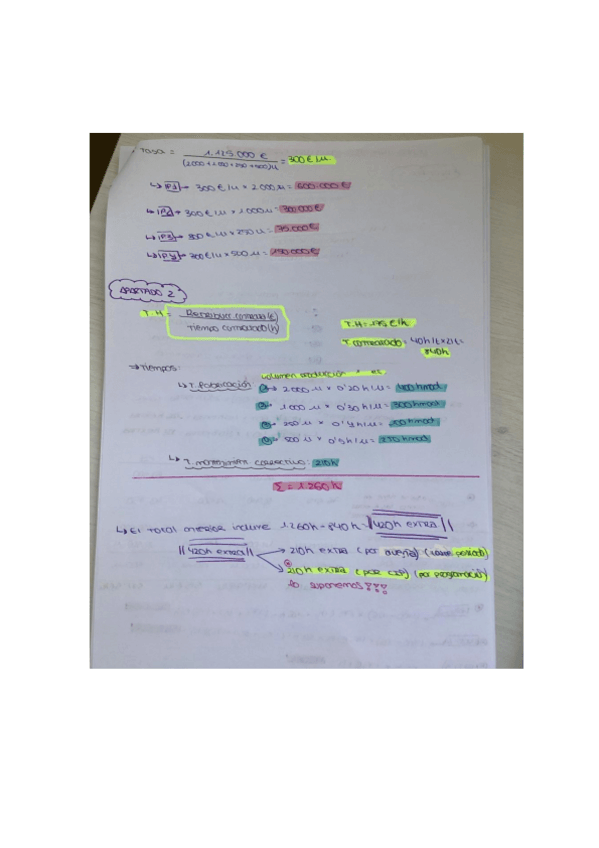 · Tasa = 1.125.000 € / (2.000 + 1.000 + 250 + 500) u = 300 €/u.
↳ IP1 → 300 €/u × 2.000 u = 600.000 €
↳ IP2 → 300 €/u × 1000 u = 300.000 €
↳ IP3 → 300 €/u × 250 u = 75.000 €
↳ IP4 → 300 €/u × 500 u = 150.000 €
APARTADO 2
T.H = Retribuc contratada (€) / Tiempo contratado (h)
T.H = 175 €/h
T contratado = 40h/t × 21t =
840h
⇒ Tiempos:
volumen producción ×
↳ T. fabricación
2.000 u × 0'20 h/u = 400 hmod
1000 u × 0'30 h/u = 300 hmod
250 u × h/u = hmod
500 u × 0'5 h/u = 250 hmod
↳ T. correctivo: 210h
Σ = 1.260 h
↳ El total incluye 1260h - 840h = 420h extra
420h extra
→ 210h extra (por avería)
→ 210h extra (por programación)
lo suponemos!!!